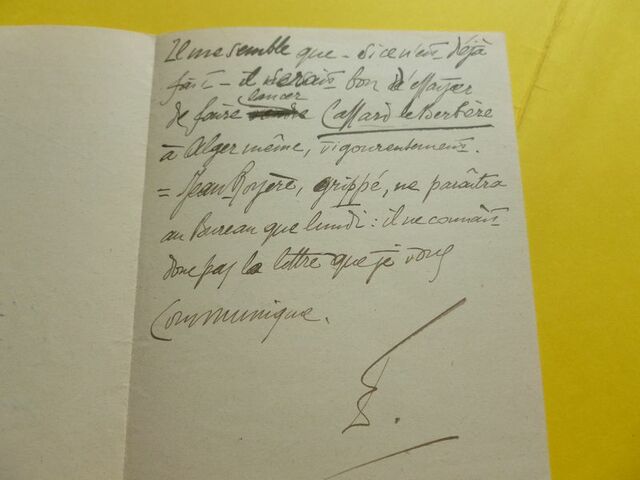 Il me semble que – si ce n'est déjà
fait – il serait bon d'essayer
lancer
de faire vendre Cassard le Berbère
à Alger même, vigoureusement.
= Jean Royère, grippé, ne paraîtra
au Bureau que lundi : il ne connaît
donc pas la lettre que je vous
communique.